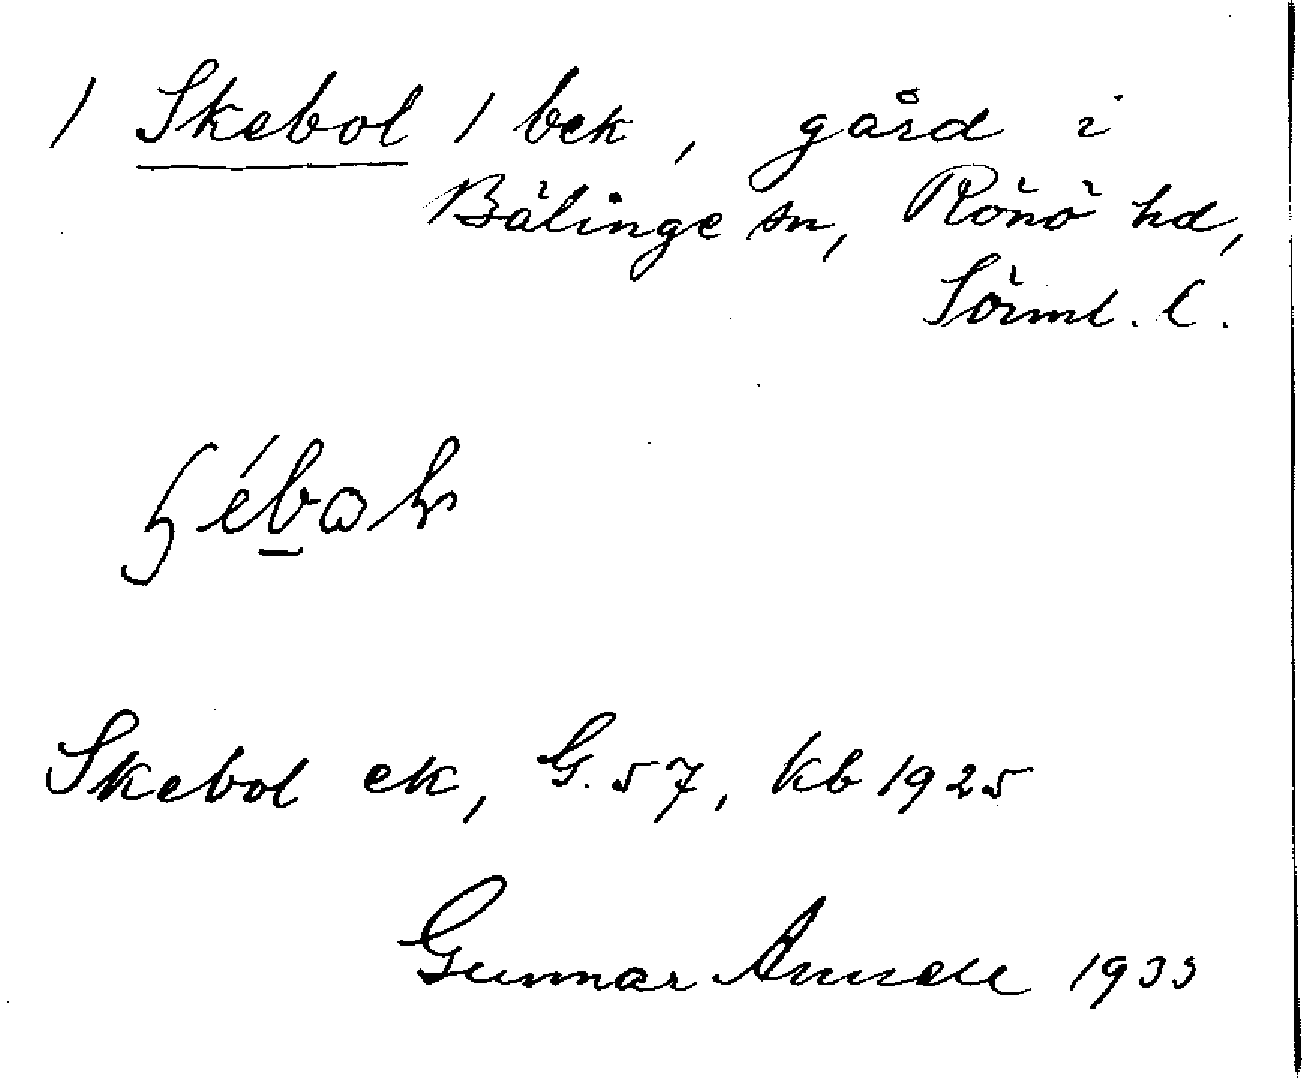 / Skebol / bek, gård i
Bälinge sn, Rönö hd,
Sörml. l.
Skebol ek, G. 57, kb 1925
Gunnar Annell 1933